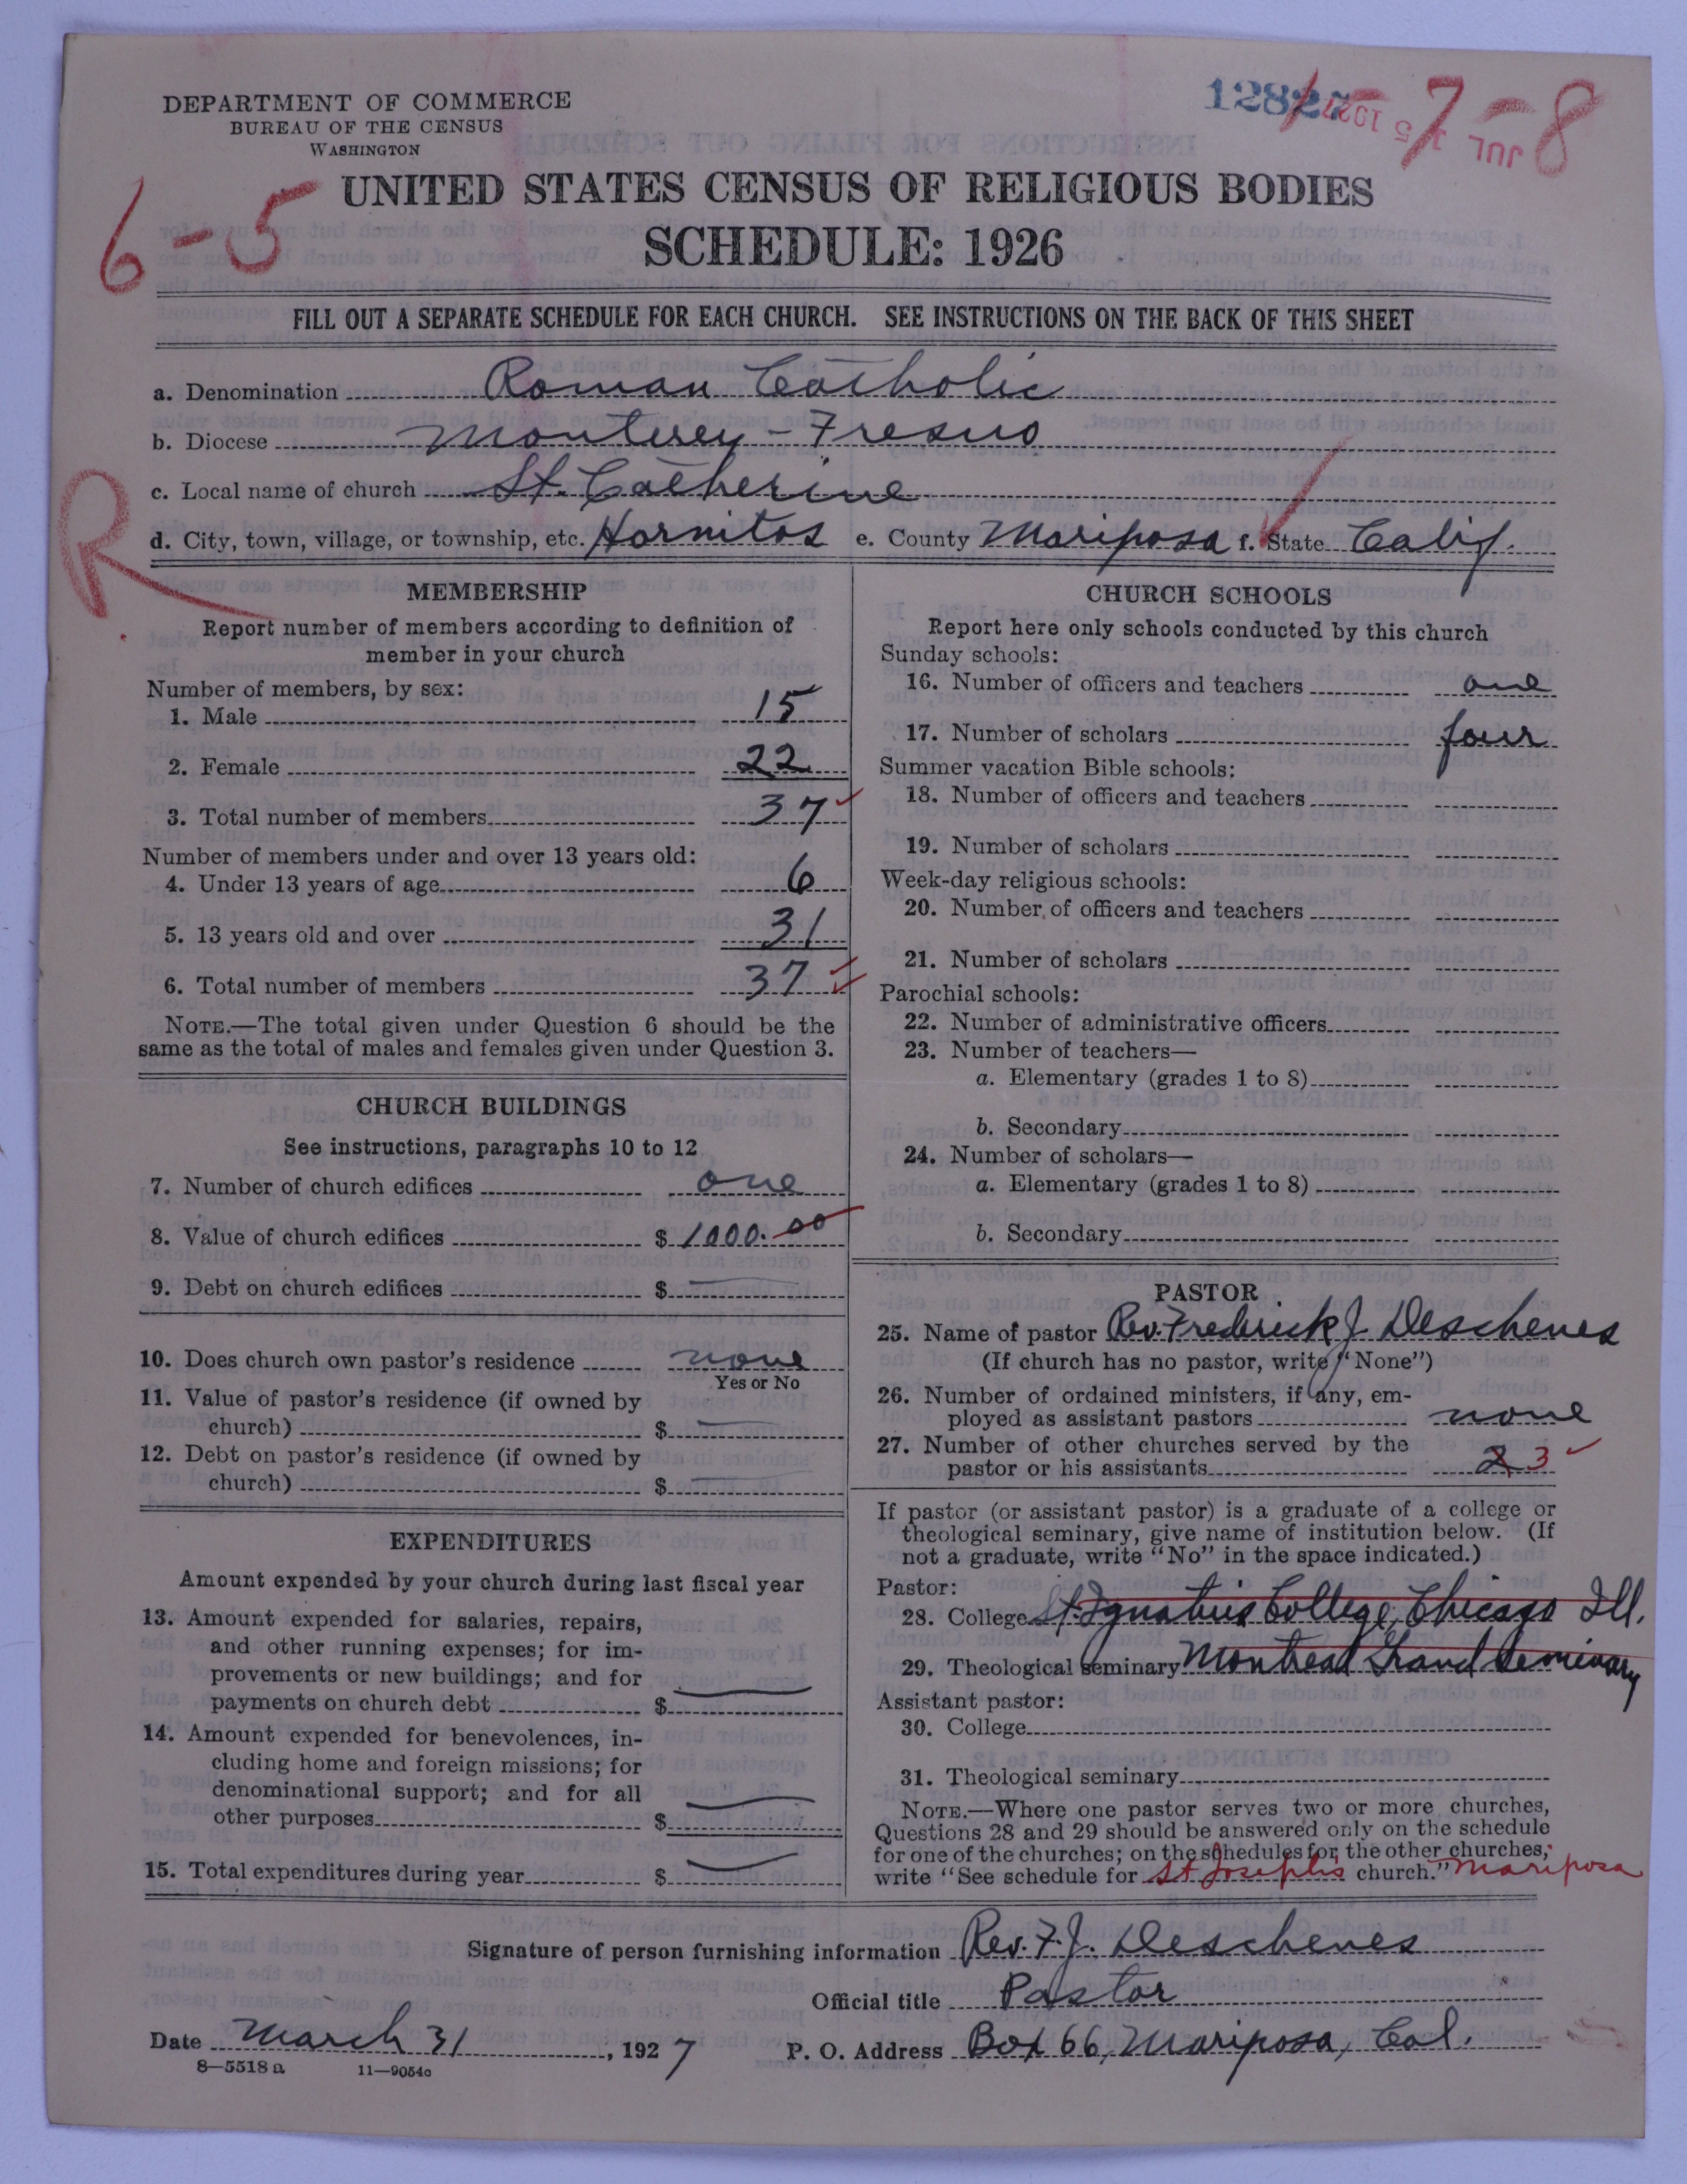 DEPARTMENT OF COMMERCE
BUREAU OF THE CENSUS
WASHINGTON
12827
JUL 15 1927
7-8
6-5
UNITED STATES CENSUS OF RELIGIOUS BODIES
SCHEDULE: 1926
FILL OUT A SEPARATE SCHEDULE FOR EACH CHURCH. SEE INSTRUCTIONS ON THE BACK OF THIS SHEET
a. Denomination Roman Catholic
b. Diocese Monterey-Fresno
c. Local name of church St. Catherine
d. City, town, village, or township, etc. Hornitos e. County Mariposa f. State Calif.
R
MEMBERSHIP
Report number of members according to definition of
member in your church
Number of members, by sex:
1. Male 15
2. Female 22
3. Total number of members 37
Number of members under and over 13 years old:
4. Under 13 years of age 6
5. 13 years old and over 31
6. Total number of members 37
NOTE.—The total given under Question 6 should be the
same as the total of males and females given under Question 3.
CHURCH BUILDINGS
See instructions, paragraphs 10 to 12
7. Number of church edifices one
8. Value of church edifices $ 1000.00
9. Debt on church edifices $
10. Does church own pastor's residence none
Yes or No
11. Value of pastor's residence (if owned by
church) $
12. Debt on pastor's residence (if owned by
church) $
EXPENDITURES
Amount expended by your church during last fiscal year
13. Amount expended for salaries, repairs,
and other running expenses; for im-
provements or new buildings; and for
payments on church debt $
14. Amount expended for benevolences, in-
cluding home and foreign missions; for
denominational support; and for all
other purposes $
15. Total expenditures during year $
CHURCH SCHOOLS
Report here only schools conducted by this church
Sunday schools:
16. Number of officers and teachers one
17. Number of scholars four
Summer vacation Bible schools:
18. Number of officers and teachers
19. Number of scholars
Week-day religious schools:
20. Number of officers and teachers
21. Number of scholars
Parochial schools:
22. Number of administrative officers
23. Number of teachers—
a. Elementary (grades 1 to 8)
b. Secondary
24. Number of scholars—
a. Elementary (grades 1 to 8)
b. Secondary
PASTOR
25. Name of pastor Rev. Frederick J. Deschenes
(If church has no pastor, write "None")
26. Number of ordained ministers, if any, em-
ployed as assistant pastors none
27. Number of other churches served by the
pastor or his assistants 2 3
If pastor (or assistant pastor) is a graduate of a college or
theological seminary, give name of institution below. (If
not a graduate, write "No" in the space indicated.)
Pastor:
28. College St. Ignatius College, Chicago Ill.
29. Theological seminary Montreal Grand Seminary
Assistant pastor:
30. College
31. Theological seminary
NOTE.—Where one pastor serves two or more churches,
Questions 28 and 29 should be answered only on the schedule
for one of the churches; on the schedules for the other churches,
write "See schedule for St Joseph's church." Mariposa
Signature of person furnishing information Rev. F. J. Deschenes
Official title Pastor
Date March 31, 1927 P. O. Address Box 66, Mariposa, Cal.
8—5518 a 11—9054c